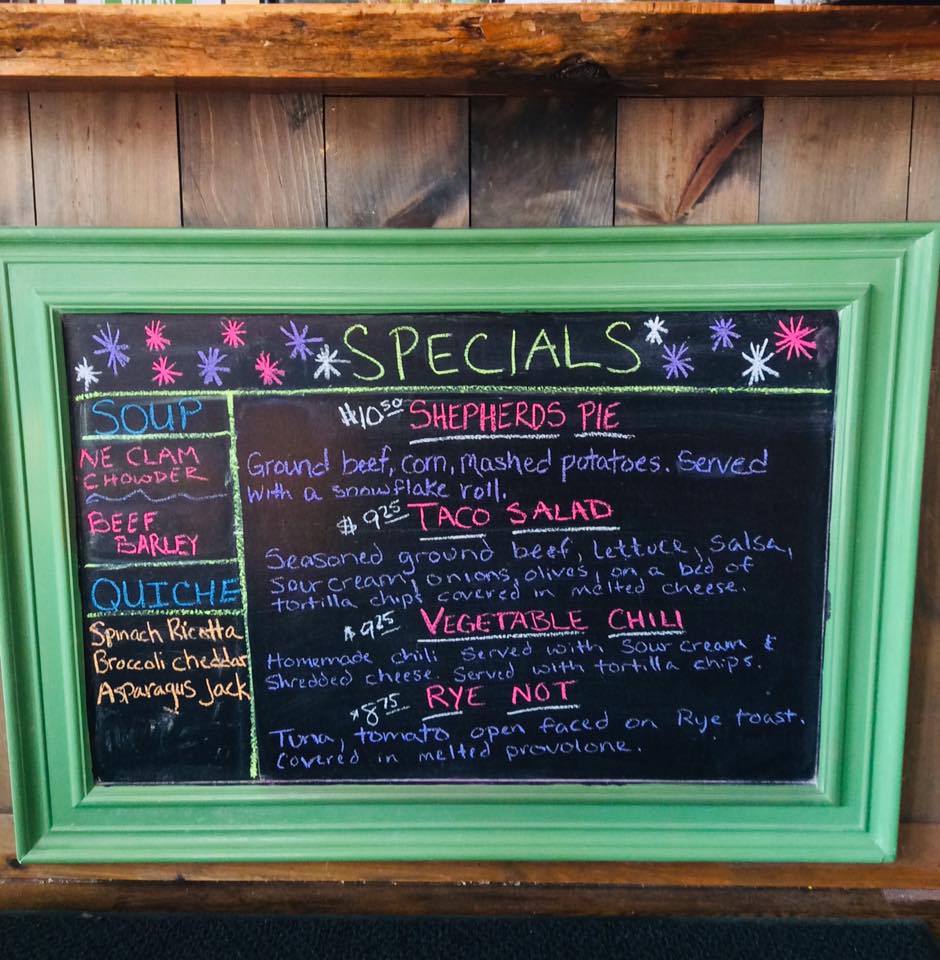 SPECIALS
SOUP
NE CLAM
CHOWDER
BEEF
BARLEY
QUICHE
Spinach Ricotta
Broccoli cheddar
Asparagus Jack
$10.50 SHEPHERDS PIE
Ground beef, corn, mashed potatoes. Served
with a snowflake roll.
$9.25 TACO SALAD
Seasoned ground beef, lettuce, salsa,
sour cream, onions, olives, on a bed of
tortilla chips covered in melted cheese.
$9.25 VEGETABLE CHILI
Homemade chili served with sour cream &
shredded cheese. Served with tortilla chips.
$8.75 RYE NOT
Tuna, tomato open faced on Rye toast.
Covered in melted provolone.